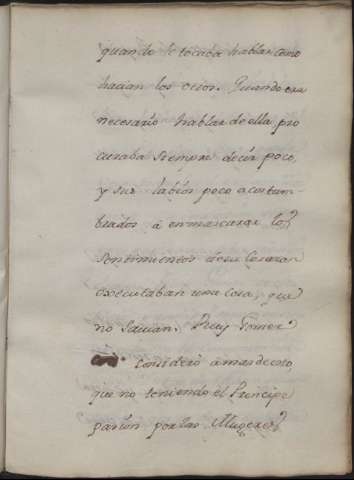 quando le tocaba hablar como
hacian los otros. Quando era
necesario hablar de ella pro
curaba siempre decir poco,
y sus labios poco acostum
brados á enmascarar los
sentimientos de su Corazon
executaban una Cosa, que
no savian. Ruiz Gomez
consideró à mas de esto,
que no teniendo el Principe
pasion por las Mugeres,